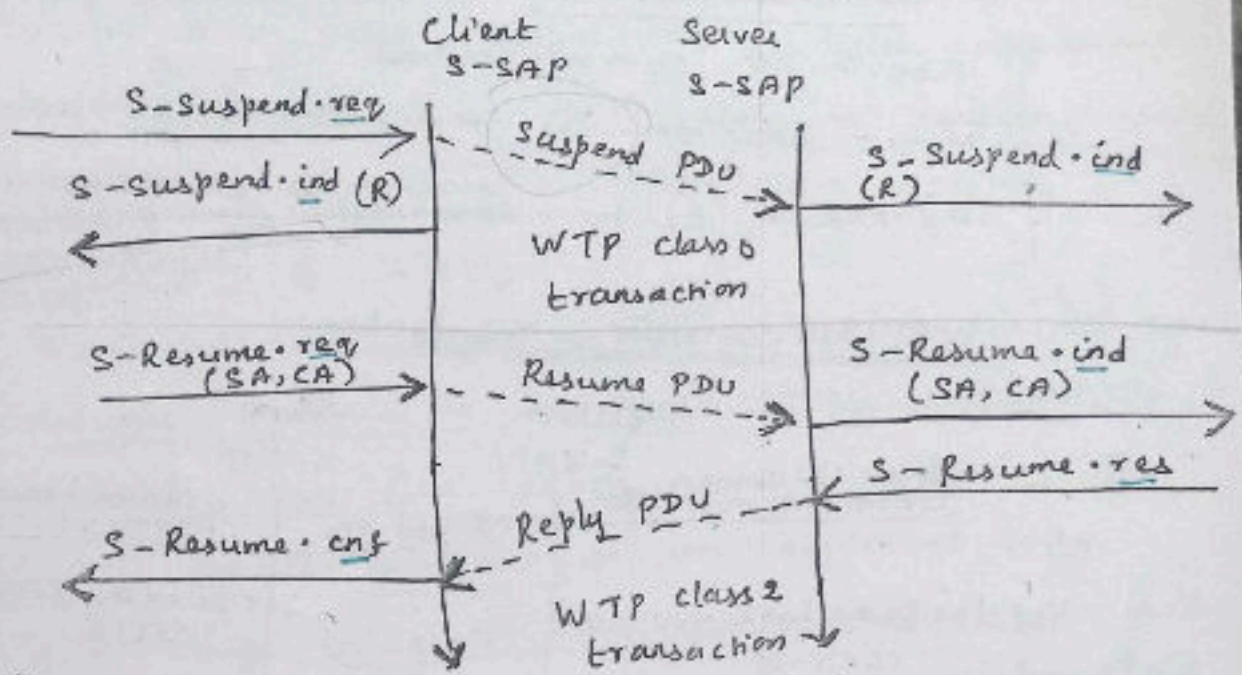 Client
S-SAP
Server
S-SAP
S-Suspend.req
Suspend PDU
S-Suspend.ind
(R)
S-Suspend.ind (R)
WTP class 0
transaction
S-Resume.req
(SA, CA)
Resume PDU
S-Resume.ind
(SA, CA)
S-Resume.res
Reply PDU
S-Resume.cnf
WTP class 2
transaction